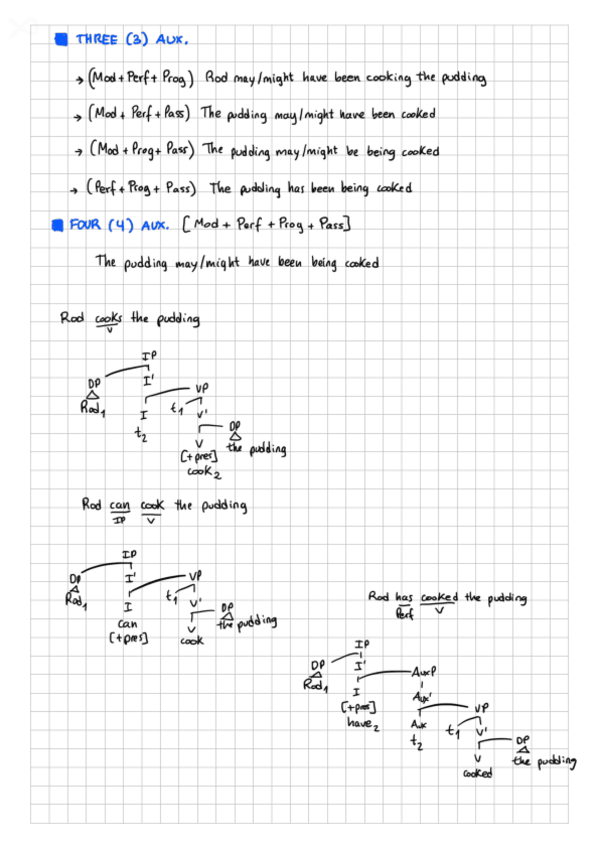 THREE (3) AUX.
→ (Mod + Perf + Prog) Rod may/might have been cooking the pudding
→ (Mod + Perf + Pass) The pudding may/might have been cooked
→ (Mod + Prog + Pass) The pudding may/might be being cooked
→ (Perf + Prog + Pass) The pudding has been being cooked
FOUR (4) AUX. [Mod + Perf + Prog + Pass]
The pudding may/might have been being cooked
Rod cooks the pudding
V
IP
DP I' VP
Rod₁ I t₁ V' DP
t₂ V the pudding
[+pres]
cook₂
Rod can cook the pudding
IP V
IP
DP I' VP
Rod₁ I t₁ V' DP
can V the pudding
[+pres] cook
Rod has cooked the pudding
Perf V
IP
DP I' AuxP
Rod₁ I Aux' VP
[+pres] Aux t₁ V' DP
have₂ t₂ V the pudding
cooked